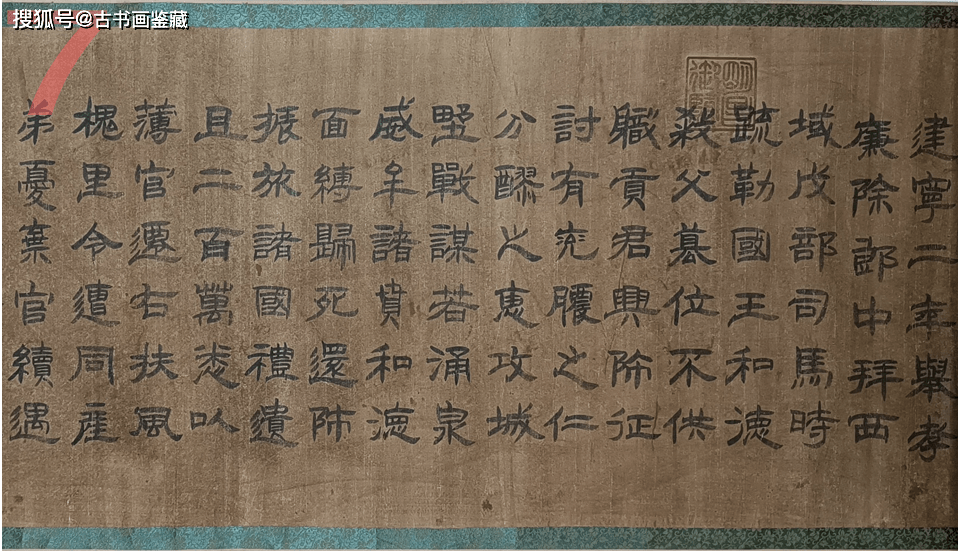 搜狐号@古书画鉴藏
建寧二年舉孝
廉除郎中拜西
域戊部司馬時
疏勒國王和德
殺父篡位不供
職貢君興師征
討有兗膿之仁
分醪之惠攻城
墅戰謀若涌泉
威牟諸賁和德
面縛歸死還師
振旅諸國禮遺
且二百萬悉以
薄官遷右扶風
槐里令遭同產
弟憂棄官續遇